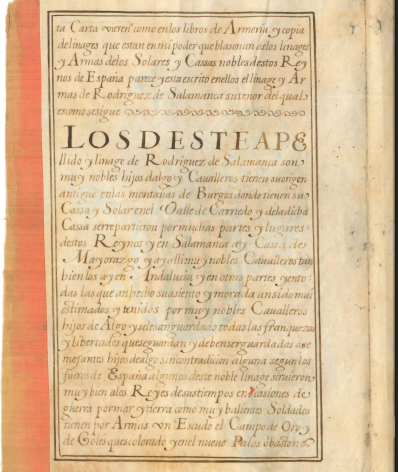 ta Carta vieren como en los libros de Armeria y copia
de linages que estan en mi poder que blasonan de los linages
y Armas de los Solares y Cassas nobles destos Rey
nos de España parece y esta escrito en ellos el linage y Ar
mas de Rodriguez de Salamanca su tenor del qual
es como se sigue
LOS DESTE APE
llido y linage de Rodriguez de Salamanca son
muy nobles hijos dalgo y Cavalleros tienen su origen
antiguo en las montañas de Burgos donde tienen su
Cassa y Solar en el Valle de Carriedo y de la dicha
Cassa se repartieron por muchas partes y lugares
destos Reynos y en Salamanca ay Cassa de
Mayorazgo y ay alli muy nobles Cavalleros tan
bien los ay en Andalucia y en otras partes y en to
das las que an hecho su asiento y morada an sido mui
estimados y tenidos por muy nobles Cavalleros
hijos de Algo y se les an guardado todas las franquezas
y libertades que se guardan y deben ser guardadas a se
mejantes hijos de algo sin contradicion alguna segun los
fueros de España algunos deste noble linage sirvieron
muy bien a los Reyes de sus tiempos en ocasiones de
guerra por mar y tierra como muy balientes Soldados
tienen por Armas un Escudo el Campo de Oro y
de Goles ques colorado y en el nueve Palos o bastones